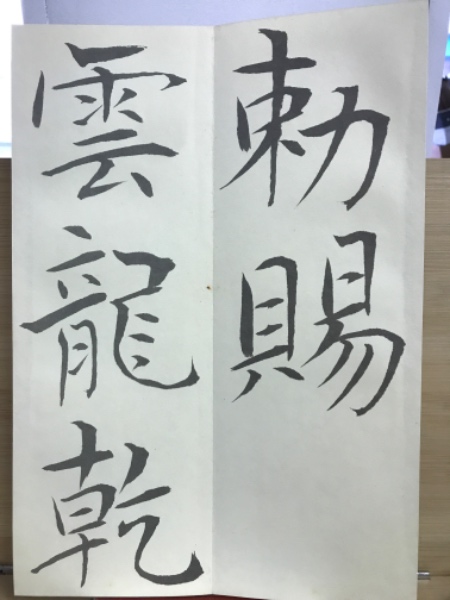 勅賜
雲龍乾